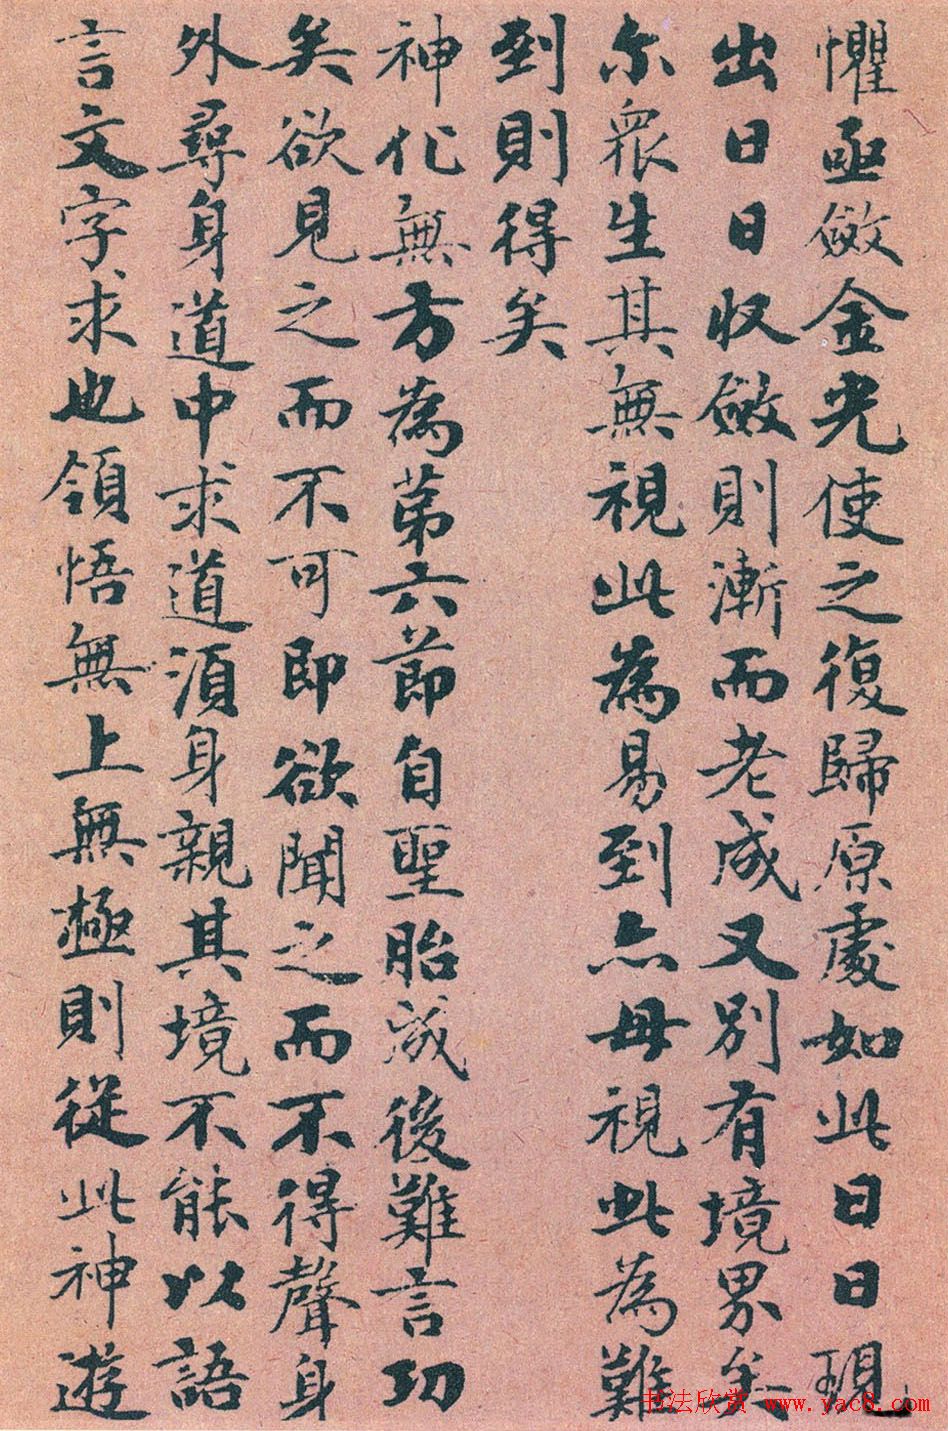 懼亟斂金光使之復歸原處如此日日現
出日日收斂則漸而老成又別有境界矣
尓衆生其無視此為易到亦毋視此為難
到則得矣
神化無方為苐六節自聖胎成後難言功
矣欲見之而不可即欲聞之而不得聲身
外尋身道中求道須身親其境不能以語
言文字求也領悟無上無極則從此神遊
书法欣赏 www.yac8.com